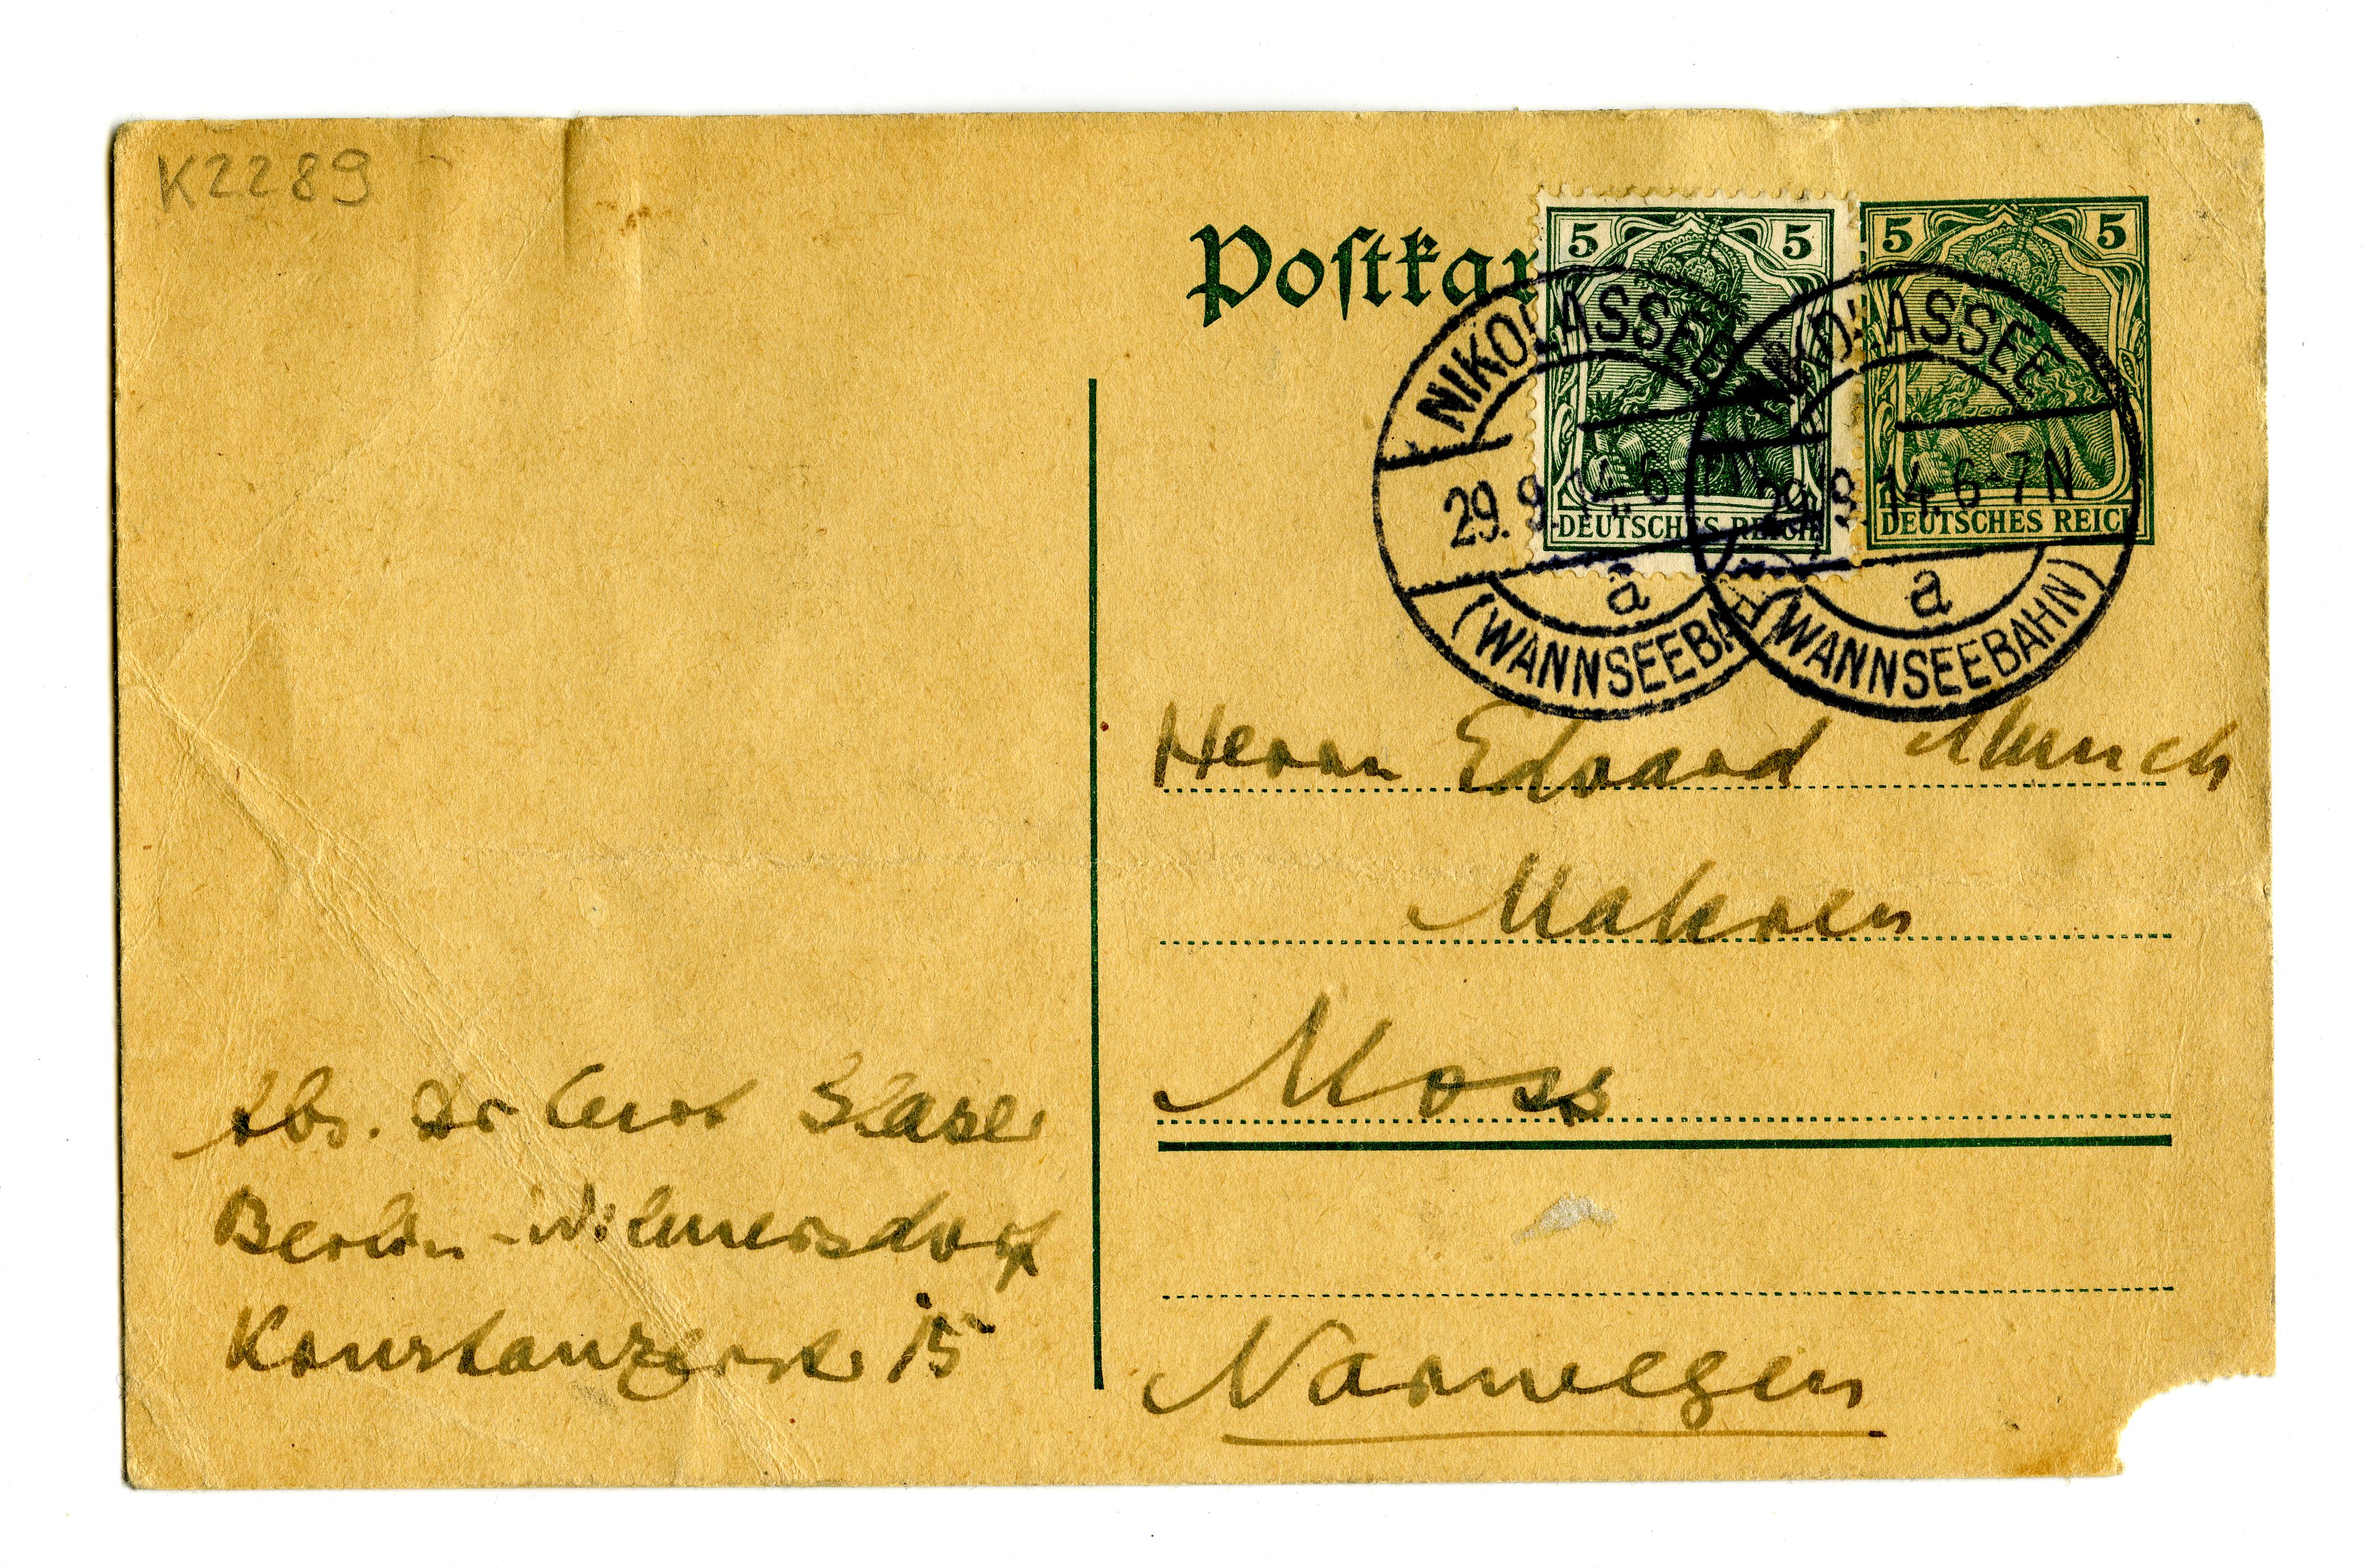 K2289
Postkar
5 5
DEUTSCHES REICH
5 5
DEUTSCHES REICH
NIKOLASSEE
29.9.14. 6
a
(WANNSEEBA
NIKOLASSEE
29.9.14. 6-7N
a
(WANNSEEBAHN)
Herrn Edvard Munch
Moss
Norwegen
Abs. Dr Curt Glaser
Berlin-Wilmersdorf
Konstanzerstr 15